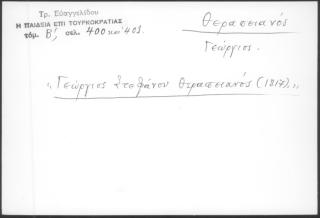 Τρ. Ευαγγελίδου
Η ΠΑΙΔΕΙΑ ΕΠΙ ΤΟΥΡΚΟΚΡΑΤΙΑΣ
τόμ. Β', σελ. 400 και 401.
Θεραπειανός
Γεώργιος.
"Γεώργιος Στεφάνου Θεραπειανός (1817)."